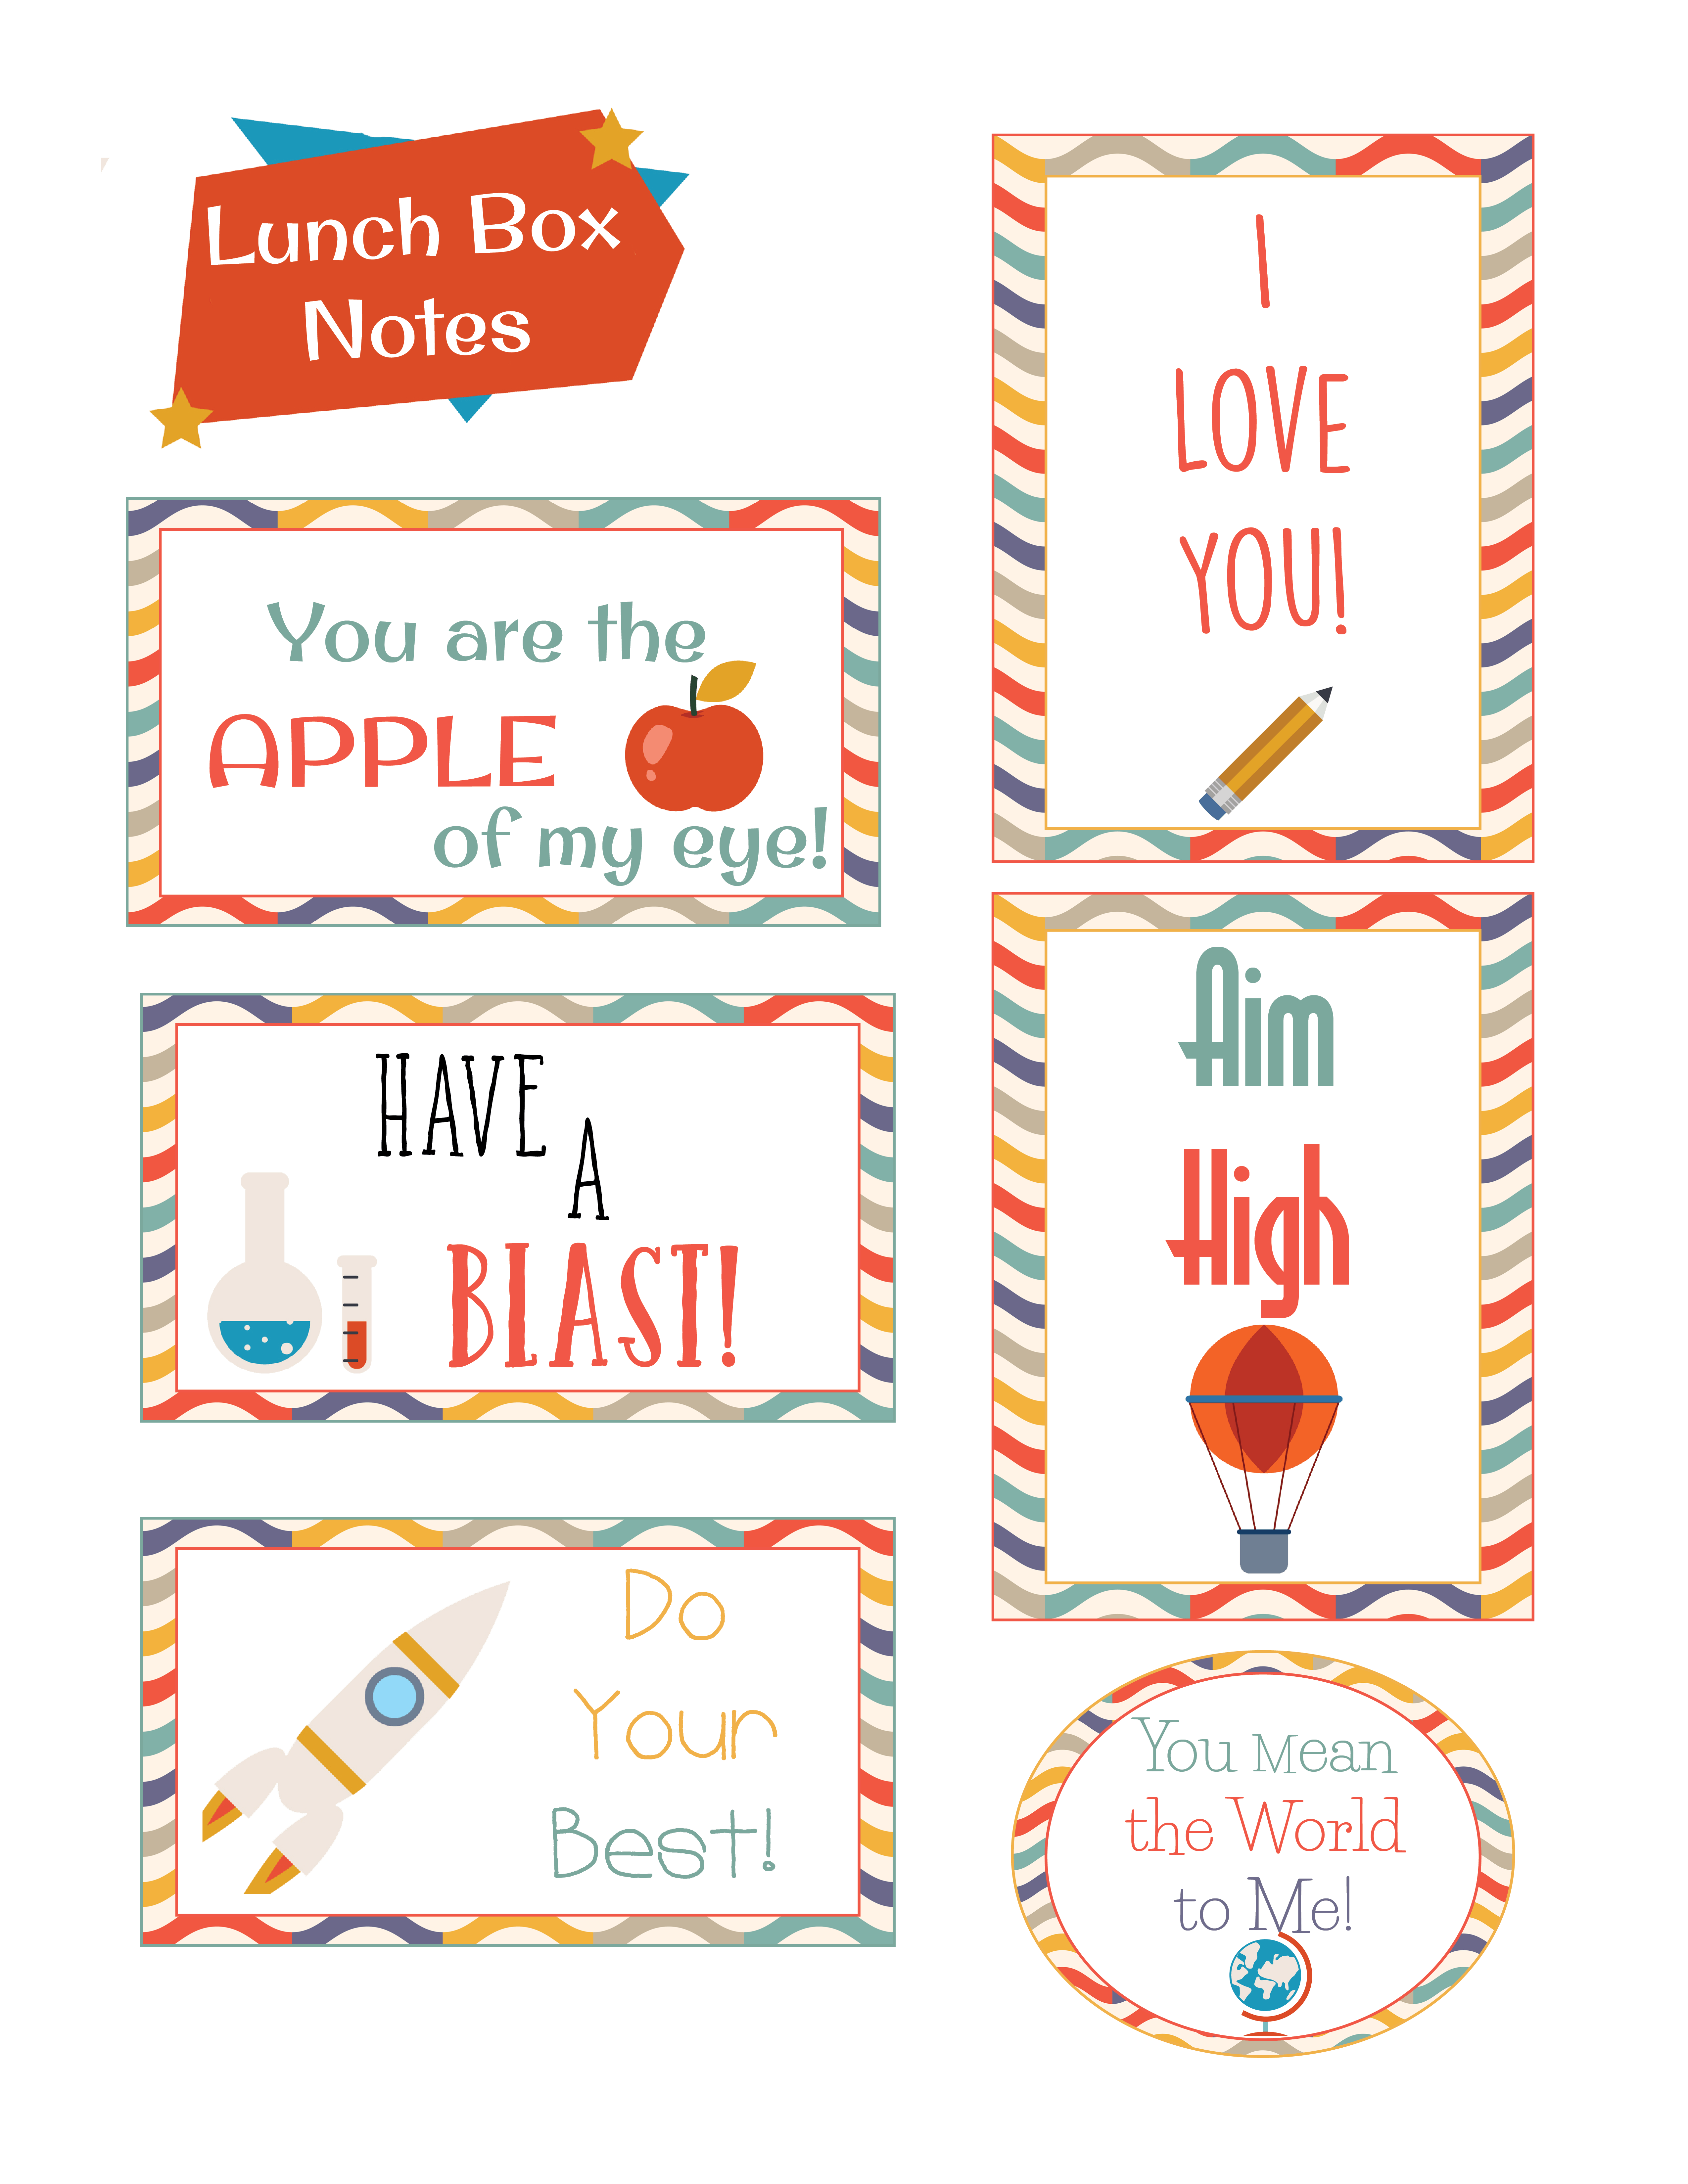 Lunch Box
Notes
You are the
APPLE
of my eye!
HAVE
A
BLAST!
Do
Your
Best!
I
LOVE
YOU!
Aim
High
You Mean
the World
to Me!